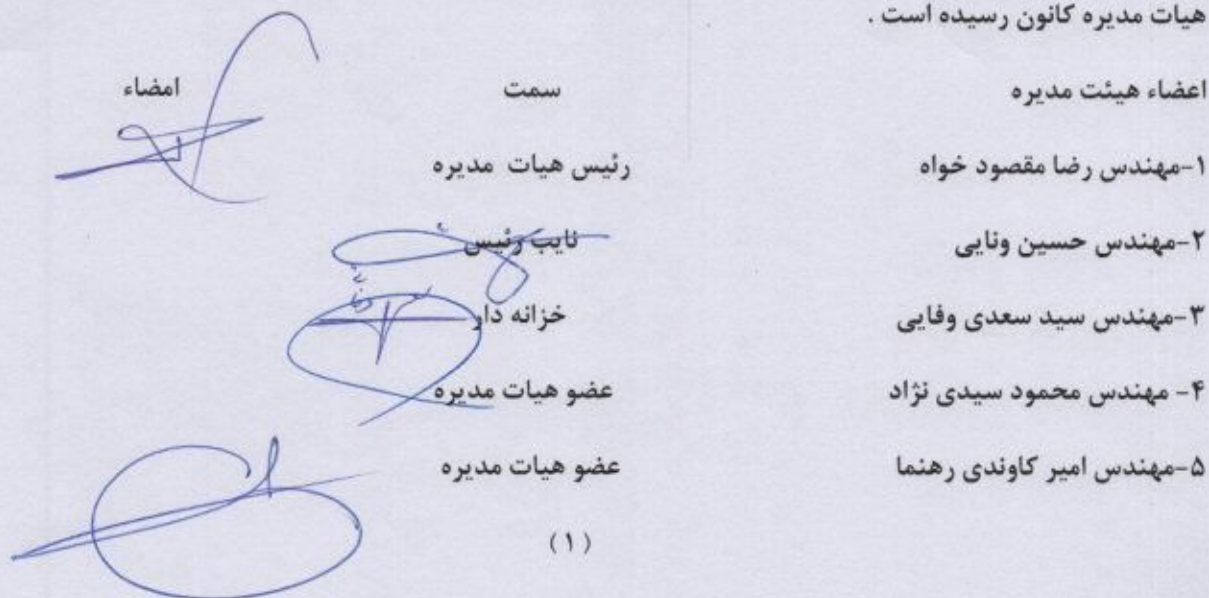 هیات مدیره کانون رسیده است .
اعضاء هیئت مدیره سمت امضاء
۱-مهندس رضا مقصود خواه رئیس هیات مدیره
۲-مهندس حسین ونایی نایب رئیس
۳-مهندس سید سعدی وفایی خزانه دار
۴- مهندس محمود سیدی نژاد عضو هیات مدیره
۵-مهندس امیر کاوندی رهنما عضو هیات مدیره
(۱)